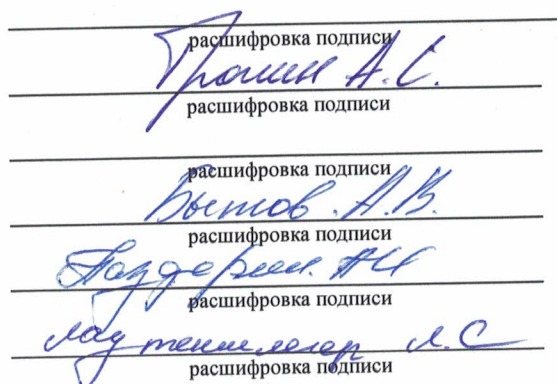 расшифровка подписи
Трошин А.С.
расшифровка подписи
расшифровка подписи
Бытов А.В.
расшифровка подписи
Паздерин А.И
расшифровка подписи
Лаутеншлегер Л.С
расшифровка подписи